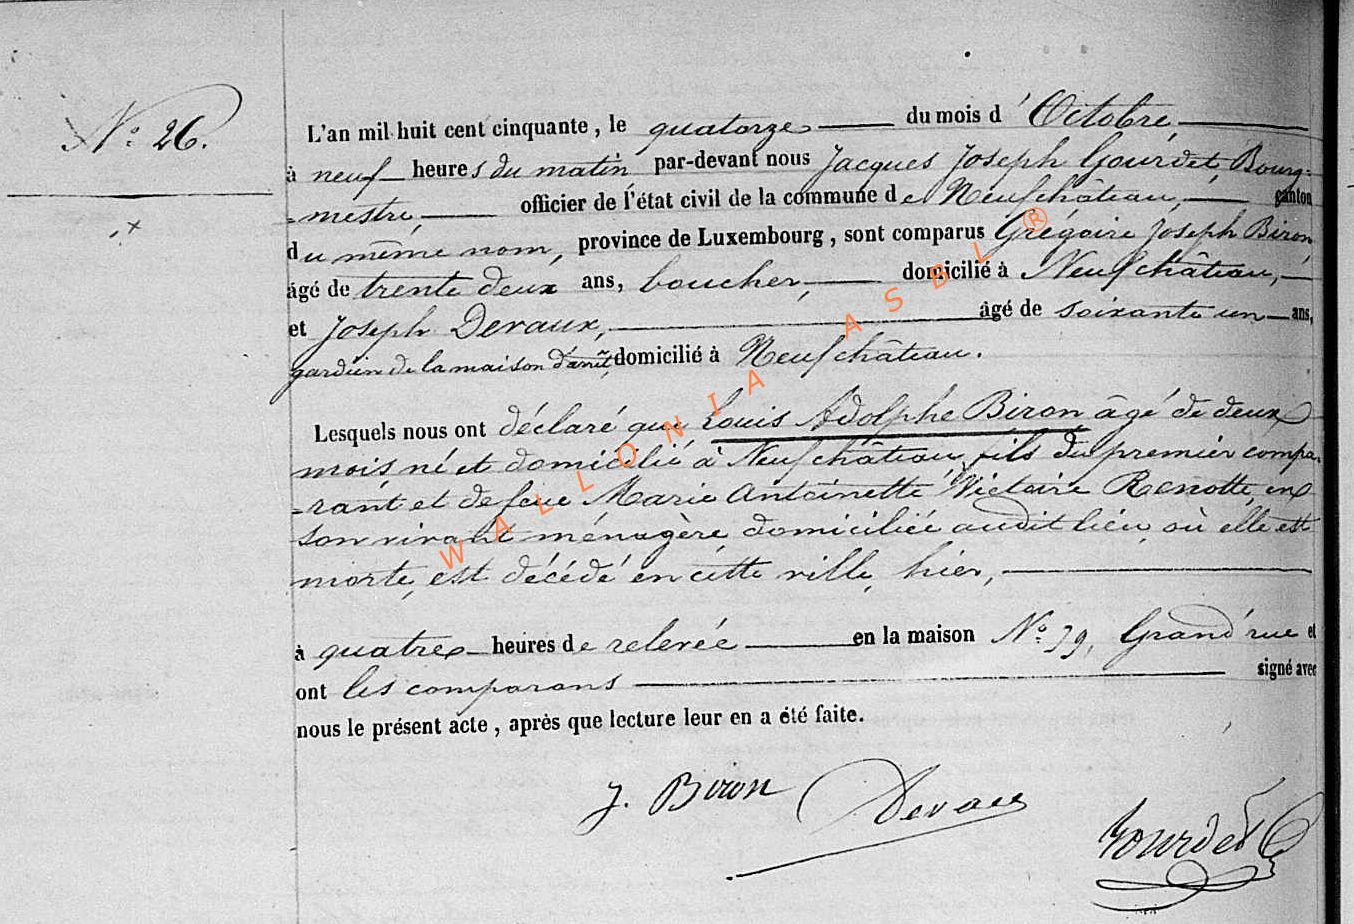 N.° 26.
L'an mil huit cent cinquante, le quatorze du mois d'Octobre,
à neuf heures du matin par-devant nous Jacques Joseph Gourdet, Bourg-
-mestre, officier de l'état civil de la commune de Neufchâteau, canton
du même nom, province de Luxembourg, sont comparus Grégoire Joseph Biron
âgé de trente deux ans, boucher, domicilié à Neufchâteau,
et Joseph Devaux, âgé de soixante un ans,
gardien de la maison d'arrêt, domicilié à Neufchâteau.
Lesquels nous ont déclaré que Louis Adolphe Biron âgé de deux
mois né et domicilié à Neufchâteau, fils du premier compa-
-rant et de feue Marie Antoinette Victoire Renotte, en
son vivant ménagère domiciliée audit lieu, où elle est
morte, est décédé en cette ville, hier,
à quatre heures de relevée en la maison N.° 39, Grand'rue et
ont les comparans signé avec
nous le présent acte, après que lecture leur en a été faite.
J. Biron Devaux
Gourdet
WALLONIA ASBL ®